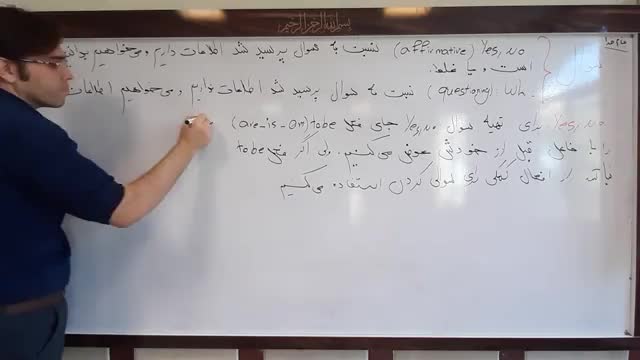 بسم الله الرحمن الرحیم
Yes, No (affirmative) نسبت به سوال پرسید شد اطلاعات داریم و می‌خواهیم
سوال
است و یا غلط.
Wh (question) نسبت به سوال پرسید شد اطلاعات نداریم و می‌خواهیم اطلاعات
Yes, No برای تهیه سوال Yes, No جای فعل tobe (are_is_am)
را با فاعل قبل از خودش عوض می‌کنیم. ولی اگر فعل tobe
از افعال کمکی برای سوالی کردن استفاده می‌کنیم